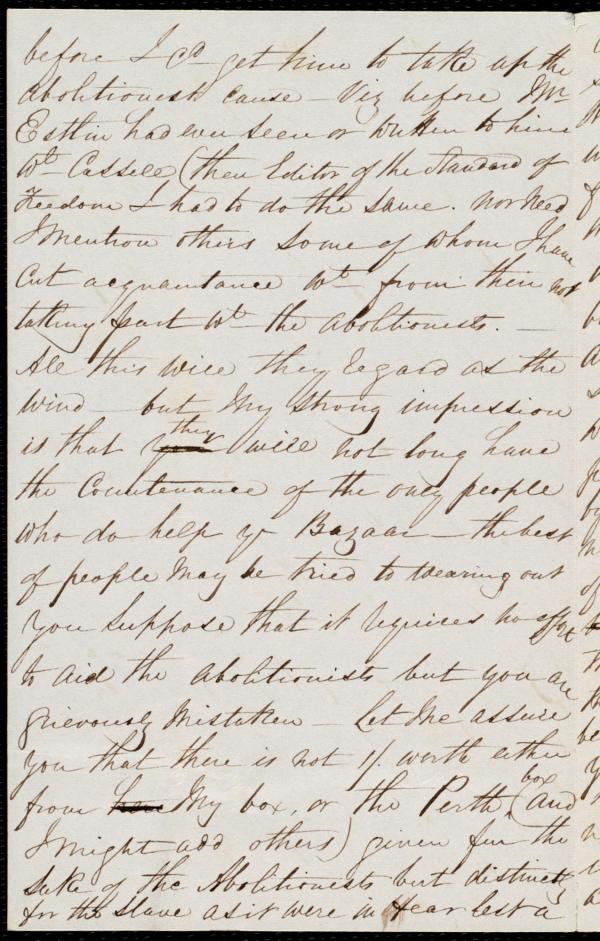 before I cd get him to take up the
abolitionist cause – Viz before Mr
Estlin had ever seen or written to him
Wt Cassell (then Editor of the Standard of
Freedom I had to do the same. Nor need
I mention others some of whom I have
cut acquaintance wt from their not
taking part wt the abolitionists. –
All this will they regard as the
wind – but my strong impression
is that they will not long have
the Countenance of the only people
who do help yr Bazaar – the best
of people may be tried to wearing out
You suppose that it requires no effort
to aid the abolitionists but you are
grievously mistaken – Let me assure
you that there is not 1/ worth either
from my box, or the Perth, box (and
I might add others) given for the
sake of the Abolitionists but distinctly
for the slave as it were in fear lest a